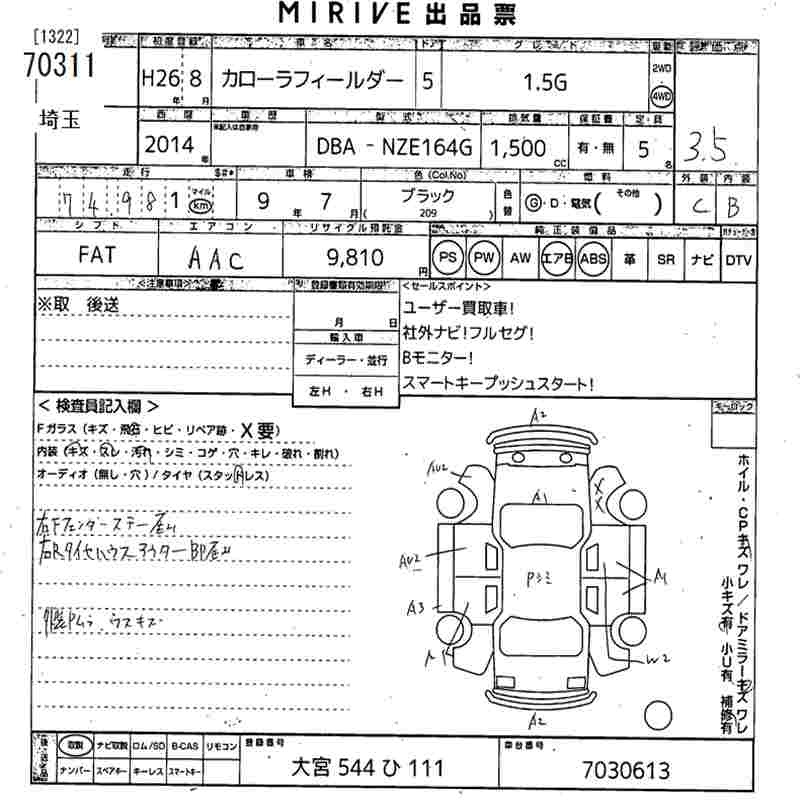 MIRIVE 出品票
[1322]
70311
埼玉
初度登録 車名 ドア グレード 駆動 評価点
H26 8 カローラフィールダー 5 1.5G 2WD 4WD
年 月
西暦 車歴 型式 排気量 保証書 定員
2014 年 DBA - NZE164G 1,500 cc 有・無 5 名 3.5
走行 車検 色 (Col.No) 燃料 外装 内装
74981 マイル km 9 年 7 月 ブラック ( 209 ) 色替 G・D・電気( その他 ) C B
シフト エアコン リサイクル預託金 純正装備品
FAT AAC 9,810 円 PS PW AW エアB ABS 革 SR ナビ DTV
<注意事項> 登録書類有効期限 <セールスポイント>
※取 後送
月 日
輸入車
ディーラー・並行
左H ・ 右H
ユーザー買取車!
社外ナビ!フルセグ!
Bモニター!
スマートキープッシュスタート!
< 検査員記入欄 >
Fガラス (キズ・飛石・ヒビ・リペア跡・X要)
内装 (キズ・スレ・汚れ・シミ・コゲ・穴・キレ・破れ・割れ)
オーディオ (無し・穴) / タイヤ (スタッドレス)
右Fフェンダーステー
右Rタイヤハウスアウター
ウスキズ
A2
AU2
A1
X
X
AU2
Pシミ
A1
A3
W2
A2
キーロック
ホイル・CPキズ ワレ / ドアミラーキズ ワレ
小キズ有 小U有 補修有
後送品
取説 ナビ取説 ロム/SD B-CAS リモコン
ナンバー スペアキー キーレス スマートキー
登録番号
大宮 544 ひ 111
車台番号
7030613